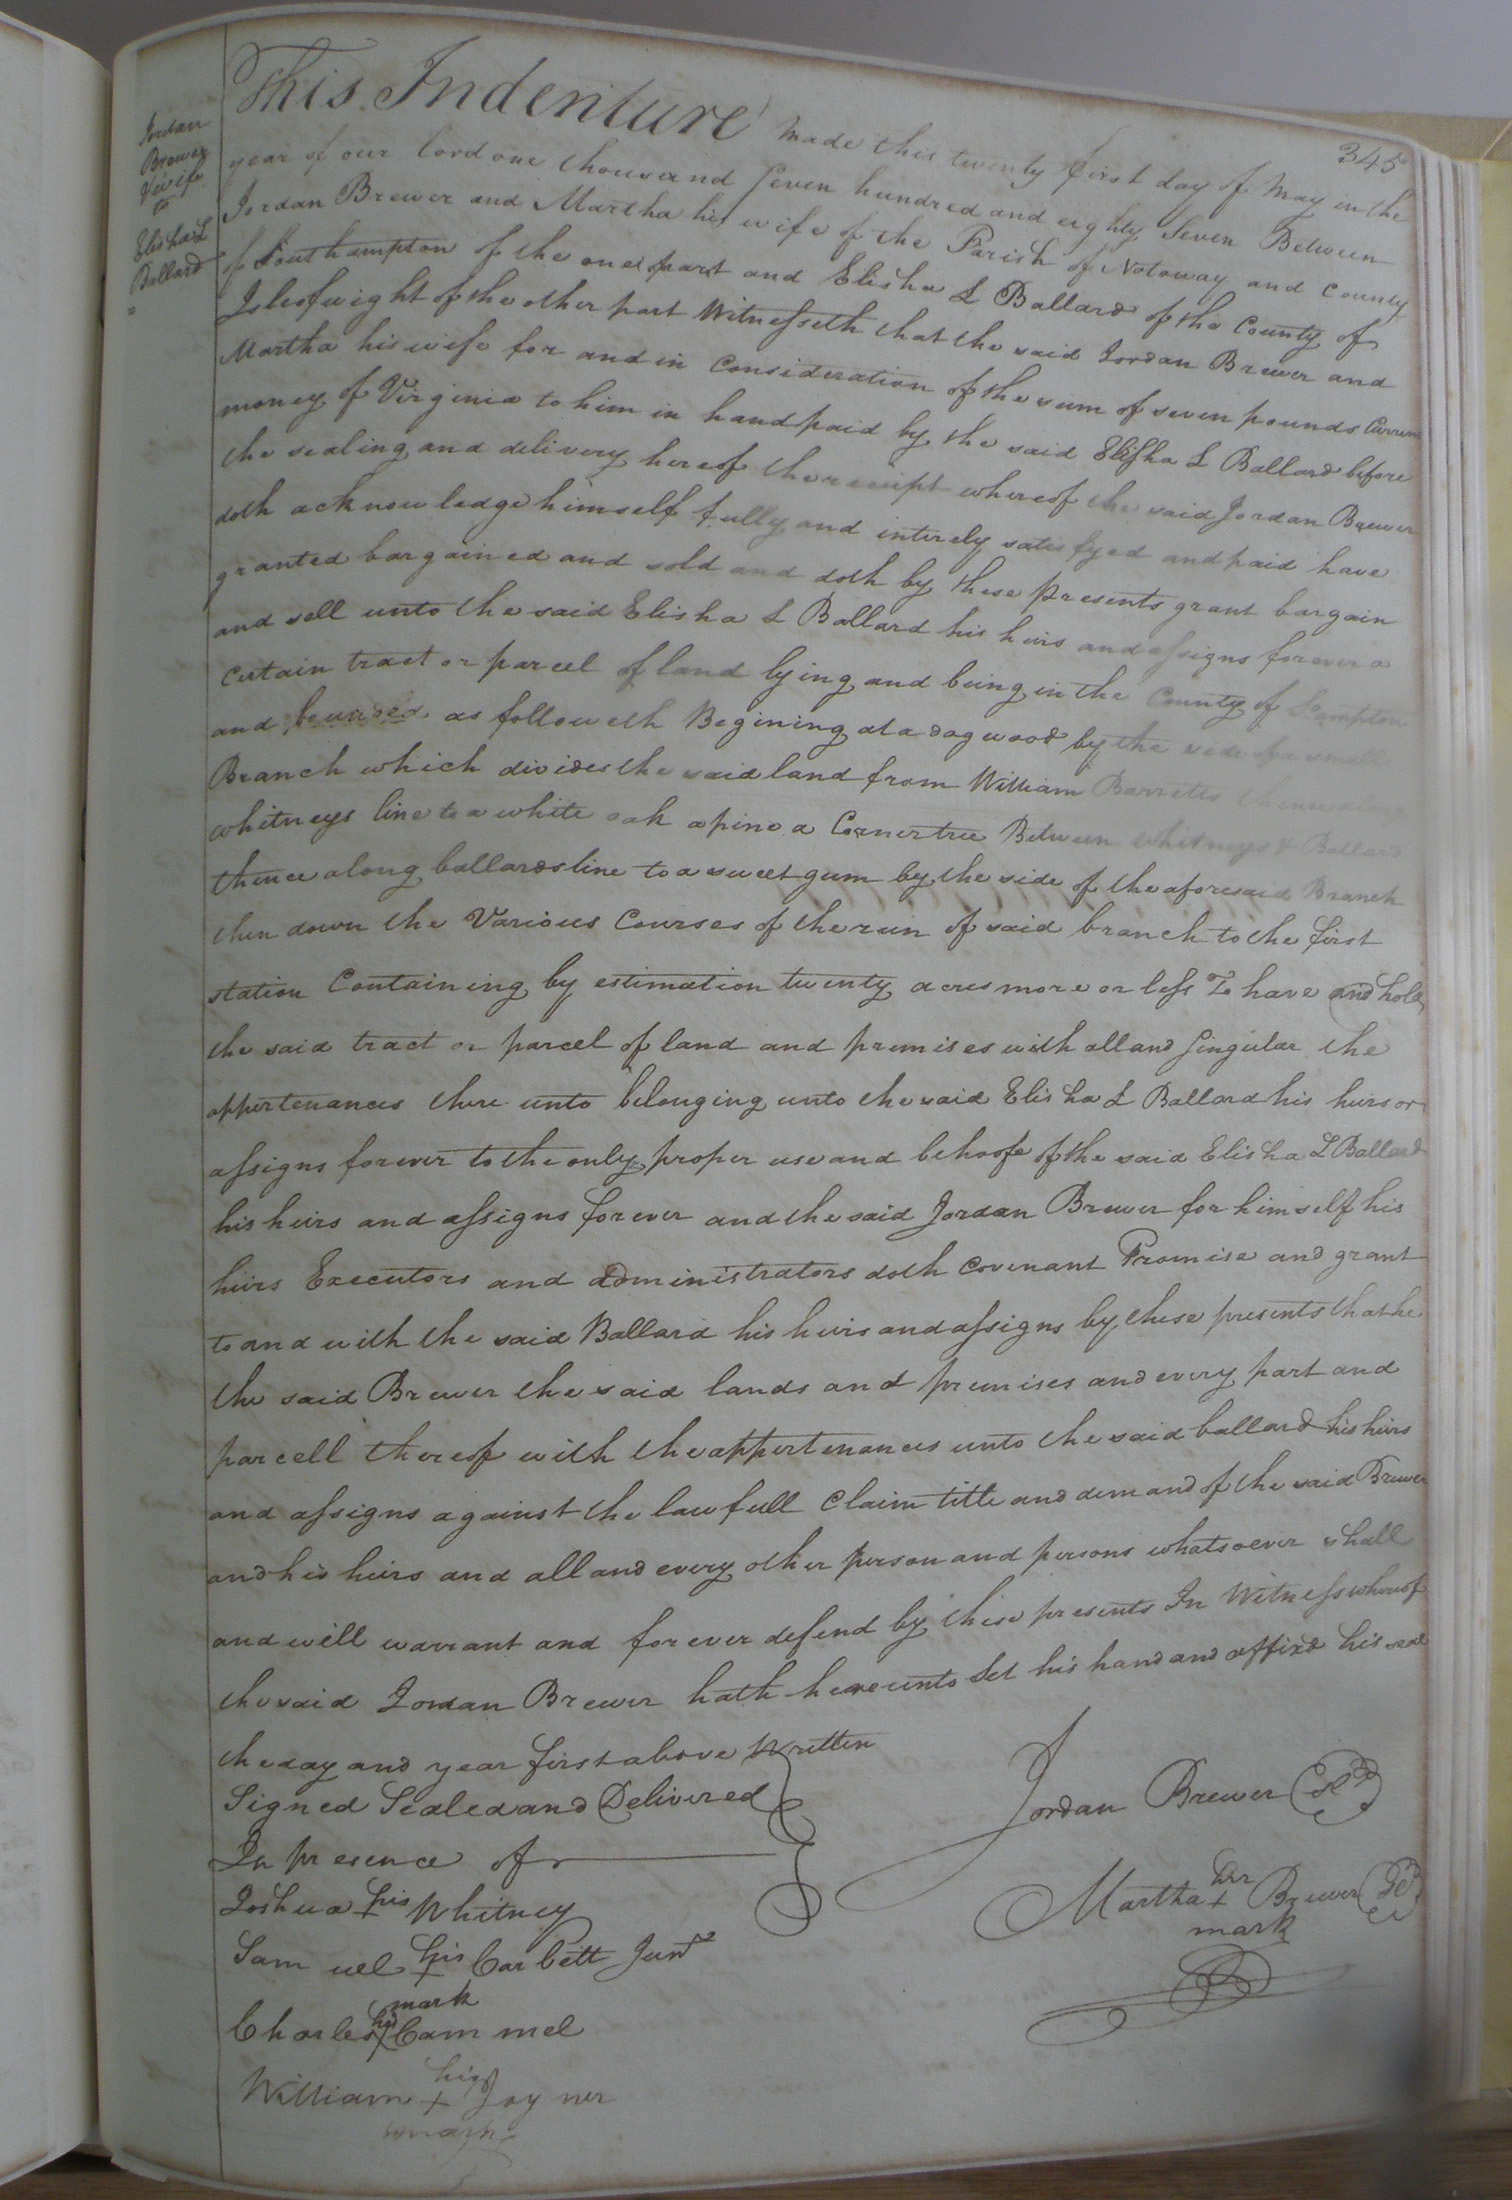 345
Jordan
Brewer
& wife
to
Elisha L
Ballard
This Indenture Made this twenty first day of May in the
year of our lord one thousand seven hundred and eighty seven Between
Jordan Brewer and Martha his wife of the Parish of Notoway and County
of Southampton of the one part and Elisha L Ballard of the County of
Isleofwight of the other part Witnesseth that the said Jordan Brewer and
Martha his wife for and in Consideration of the sum of seven pounds Current
money of Virginia to him in hand paid by the said Elisha L Ballard before
the sealing and delivery hereof the receipt whereof the said Jordan Brewer
doth acknowledge himself fully and intirely satisfyed and paid have
granted bargained and sold and doth by these presents grant bargain
and sell unto the said Elisha L Ballard his heirs and assigns forever a
Certain tract or parcel of land lying and being in the County of Sampton
and bounded as followeth Begining at a dogwood by the side of a small
Branch which divides the said land from William Barretts thence along
whitneys line to a white oak a pine a Corner tree Between Whitneys & Ballard
thence along ballards line to a sweet gum by the side of the aforesaid Branch
then down the Various Courses of the run of said branch to the first
station Containing by estimation twenty acres more or less To have and hold
the said tract or parcel of land and premises with all and singular the
appertenances there unto belonging unto the said Elisha L Ballard his heirs or
assigns forever to the only proper use and behoofe of the said Elisha L Ballard
his heirs and assigns forever and the said Jordan Brewer for himself his
heirs Executors and administrators doth Covenant Promise and grant
to and with the said Ballard his heirs and assigns by these presents that he
the said Brewer the said lands and premises and every part and
parcell thereof with the appertenances unto the said ballard his heirs
and assigns against the lawfull Claim title and demand of the said Brewer
and his heirs and all and every other person and persons whatsoever shall
and will warrant and forever defend by these presents In Witness whereof
the said Jordan Brewer hath hereunto Set his hand and affixd his seal
the day and year first above Written
Signed Sealed and Delivered
In presence of
Jordan Brewer
Joshua his + Whitney
Martha her + Brewer
mark
Samuel his + Corbett Junr
mark
Charles his + Cammel
William his + Joyner
mark